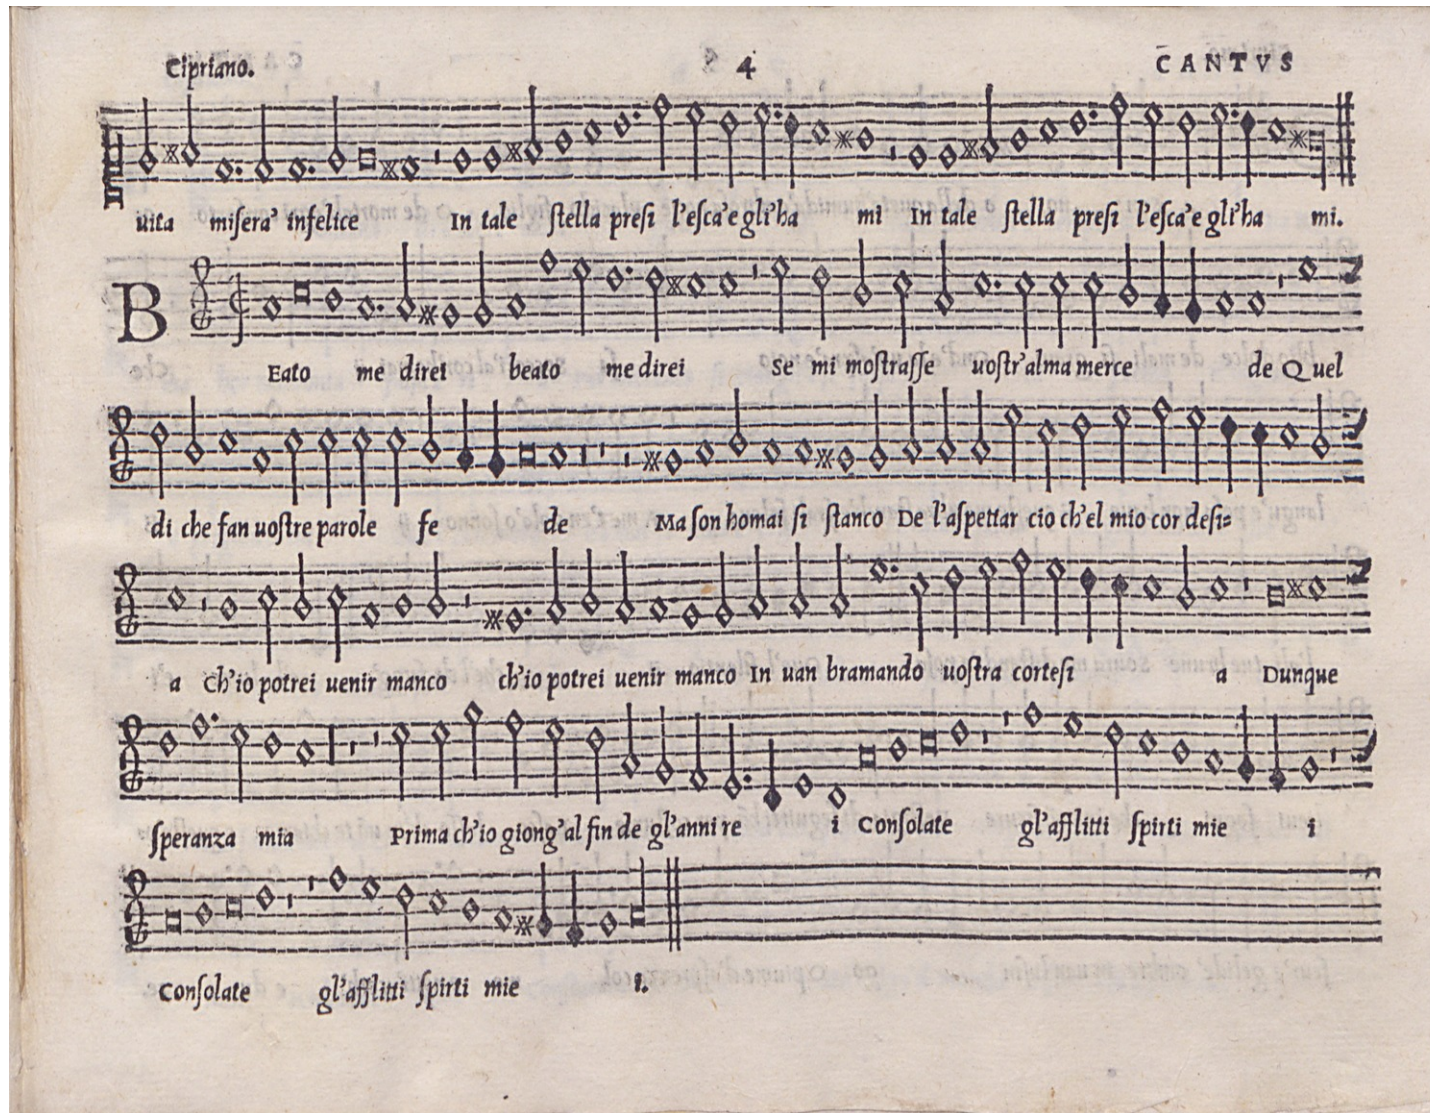 Cipriano. 4 CANTVS
uita misera' infelice In tale stella presi l'esca'e gli'ha mi In tale stella presi l'esca'e gli'ha mi.
B Eato me direi beato me direi Se mi mostrasse uostr'alma merce de Quel
di che fan uostre parole fe de Ma son homai si stanco De l'aspettar cio ch'el mio cor desi=
a Ch'io potrei uenir manco ch'io potrei uenir manco In uan bramando uostra cortesi a Dunque
speranza mia Prima ch'io giong'al fin de gl'anni re i Consolate gl'afflitti spirti mie i
Consolate gl'afflitti spirti mie i.